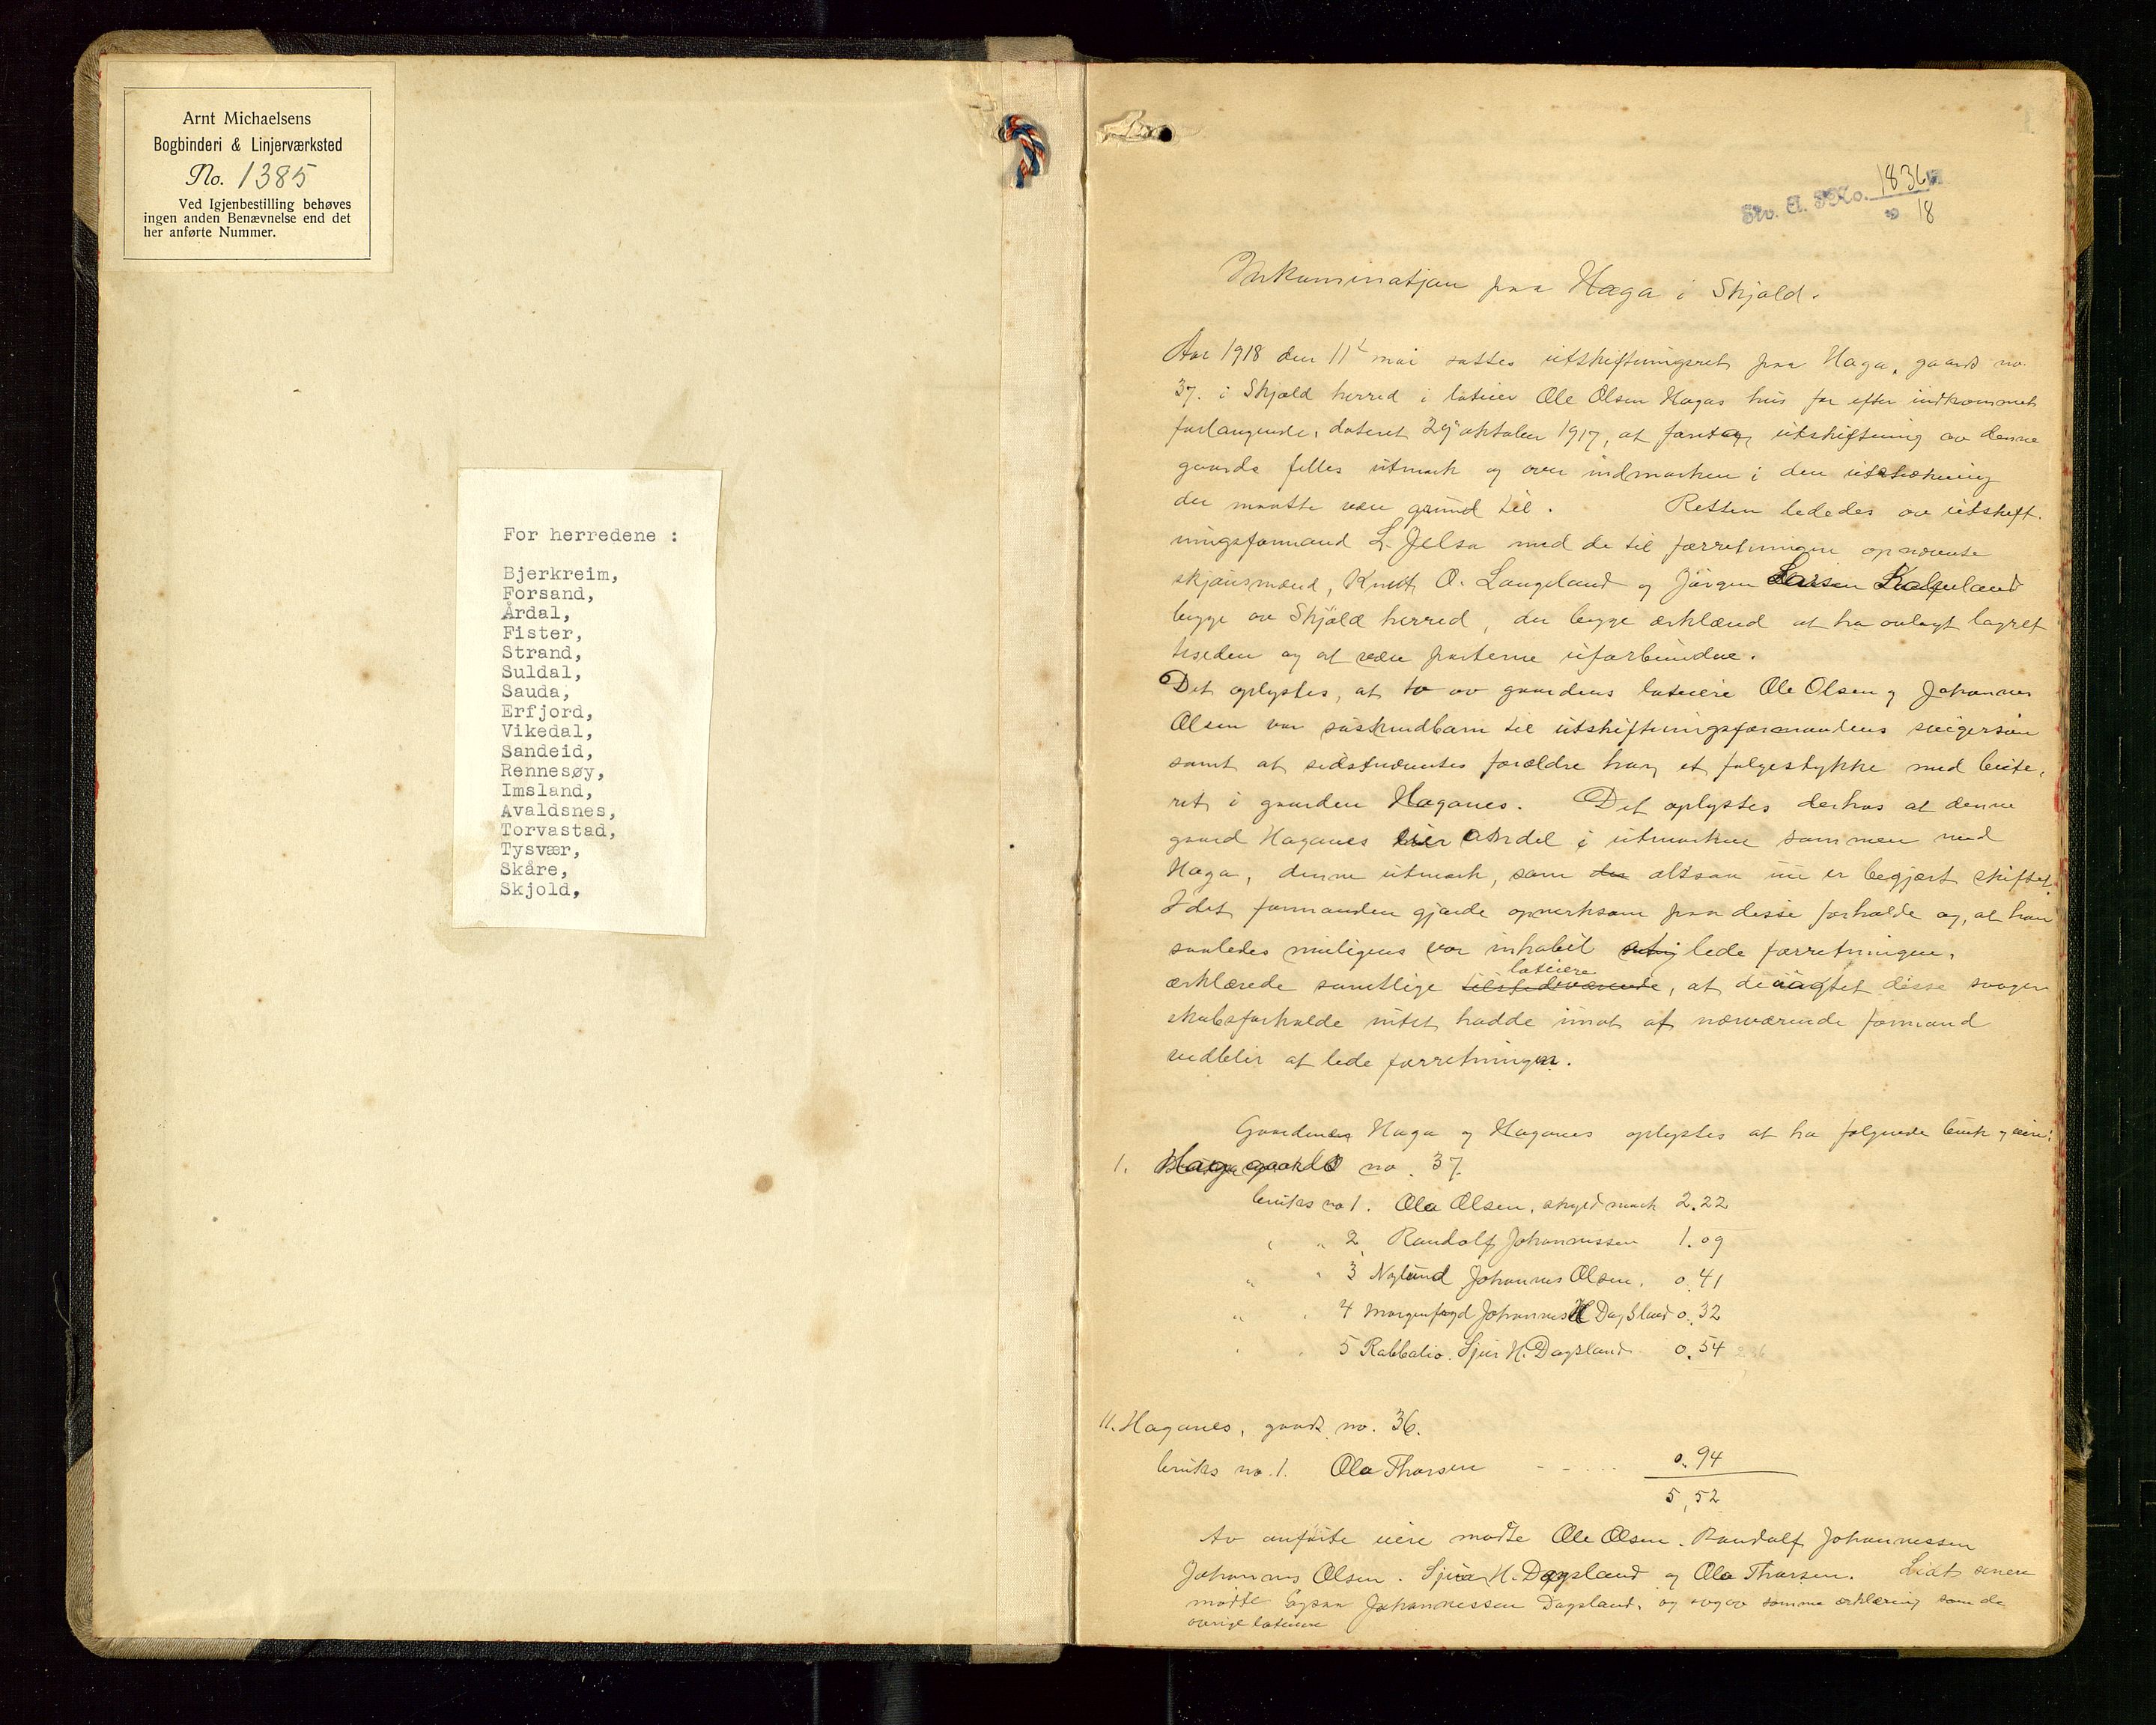 Arnt Michaelsens
Bogbinderi & Linjerværksted
No. 1385
Ved Igjenbestilling behøves
ingen anden Benævnelse end det
her anførte Nummer.
For herredene :
Bjerkreim,
Forsand,
Årdal,
Fister,
Strand,
Suldal,
Sauda,
Erfjord,
Vikedal,
Sandeid,
Rennesøy,
Imsland,
Avaldsnes,
Torvastad,
Tysvær,
Skåre,
Skjold,
1836
18
paa Haga i Skjold.
Aar 1918 den 11t mai sattes utskiftningsret paa Haga, gaards no.
37. i Skjold herred i lateier Ole Olsen Hagas hus for efter indkommet
forlangende, dateret 29 oktober 1917, at foreta utskiftning av denne
gaards felles utmark og over indmarken i den utstrækning
der maatte være grund til. Retten lededes av utskift-
ningsformand L. Jelsa med de til forretningen opnævnte
skjønsmænd, Knut O. Langeland og Jørgen
begge av Skjold herred, der begge erklærd at ha avlagt lagret
teseden og at være parterne uforbundne.
Det oplystes, at to av gaardens lateiere Ole Olsen og Johannes
Olsen var søskendbarn til utskiftningsformandens svigersøn
samt at sidstnævntes forældre har et følgestykke med beite-
ret i gaarden Haganes. Det oplystes derhos at denne
gaard Haganes eier andel i utmarken sammen med
Haga, denne utmark, som der altsaa nu er begjært skiftet.
Idet formanden gjorde opmerksom paa disse forholde og, at han
saaledes muligens var inhabil lede forretningen,
erklærede samtlige tilstedeværende lateiere, at de uagtet disse svoger-
skabsforholde intet hadde imot at nærværende formand
vedblir at lede forretningen.
Gaardenes Haga og Haganes oplystes at ha følgende bruk og eiere:
1. Haga gaards no. 37.
bruks no 1. Ola Olsen, skyld mark 2.22
" " 2 Randolf Johannessen 1.09
" " 3 Nylund Johannes Olsen. 0.41
" " 4 Johannes H Dagsland 0.32
" " 5 Rabbalio. Sjur H. Dagsland 0.54
11. Haganes, gaards no. 36.
bruks no. 1. Ola Thorsen - - - - 0.94
5,52
Av anførte eiere møtte Ole Olsen. Randolf Johannessen
Johannes Olsen. Sjur H. Dagsland og Ola Thorsen. Lidt senere
møtte Johannessen Dagsland, og avgav samme erklæring som de
øvrige lateiere